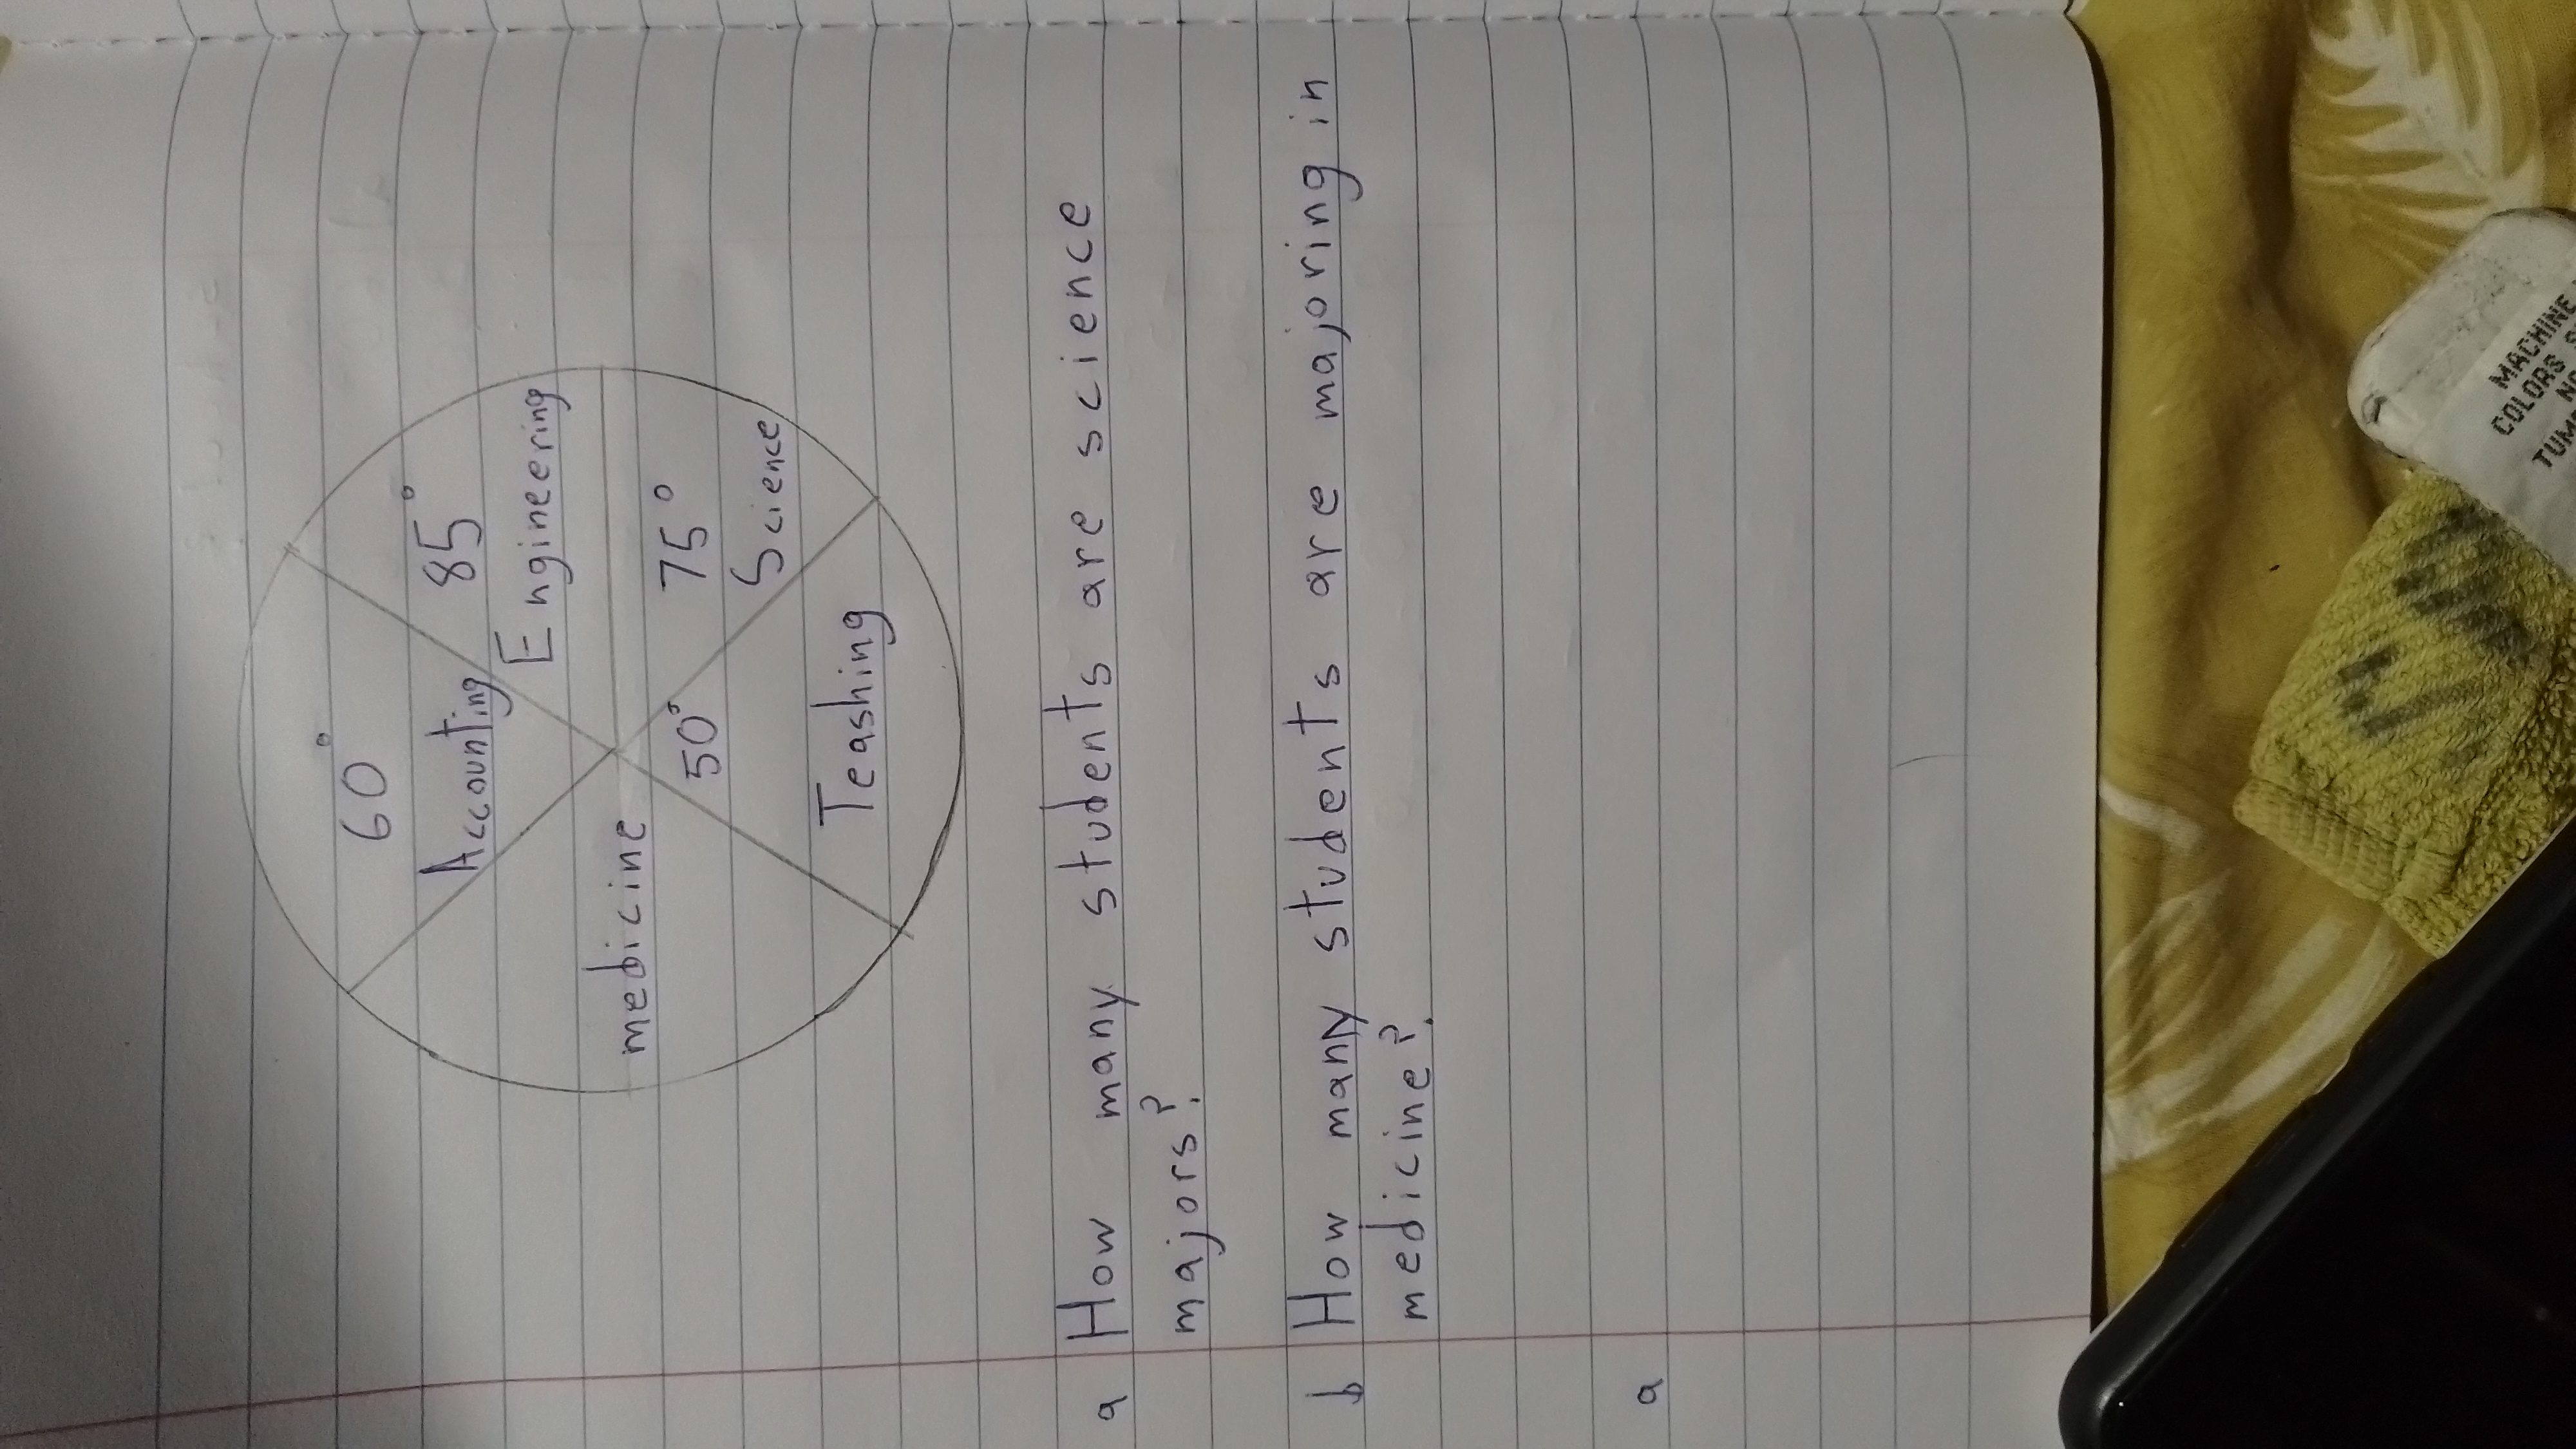 60°
Accounting
85°
Engineering
medicine
50°
75°
Science
Teashing
a How many students are science
majors?
b How many students are majoring in
medicine?
a
MACHINE
COLORS
NO